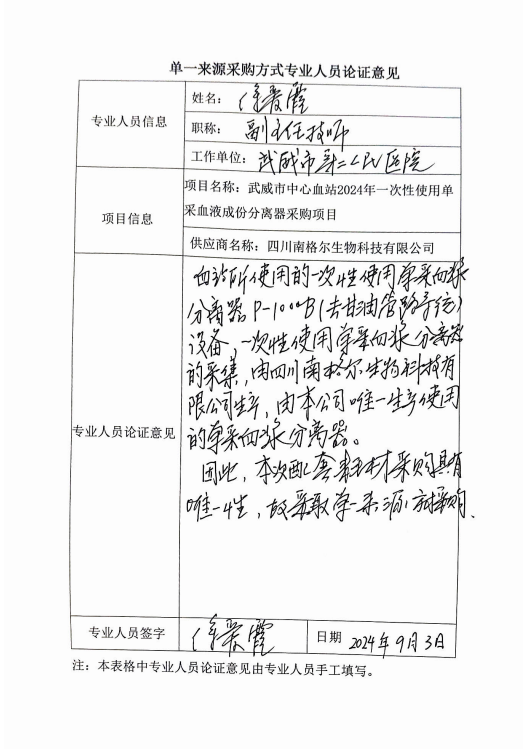 单一来源采购方式专业人员论证意见
专业人员信息
姓名：徐爱霞
职称：副主任技师
工作单位：武威市第二人民医院
项目信息
项目名称：武威市中心血站2024年一次性使用单
采血液成份分离器采购项目
供应商名称：四川南格尔生物科技有限公司
专业人员论证意见
血站所使用的一次性使用单采血浆
分离器P-1000B(去甘油管路系统)
设备，一次性使用单采血浆分离器
的采集，由四川南格尔生物科技有
限公司生产，由本公司唯一生产使用
的单采血浆分离器。
因此，本次配套耗材采购具有
唯一性，故采取单一来源方式采购.
专业人员签字
徐爱霞
日期
2024年9月3日
注：本表格中专业人员论证意见由专业人员手工填写。